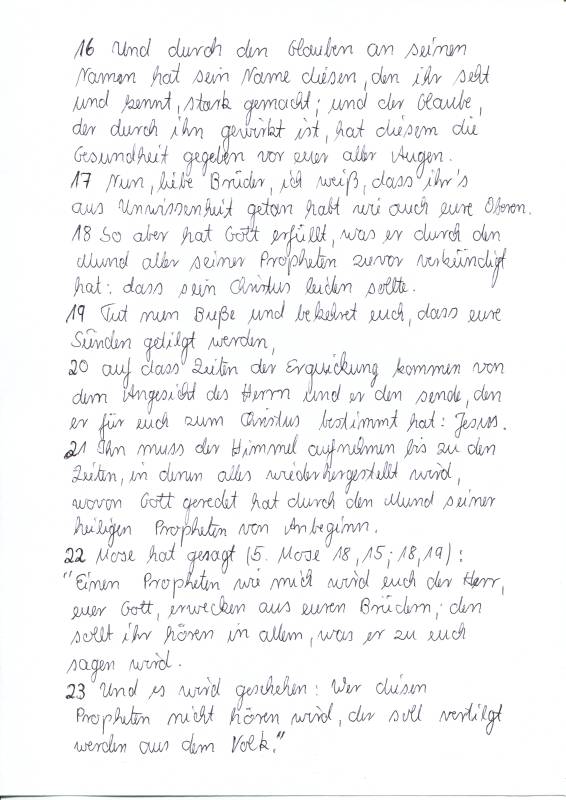 16 Und durch den Glauben an seinen
Namen hat sein Name diesen, den ihr seht
und kennt, stark gemacht; und der Glaube,
der durch ihn gewirkt ist, hat diesem die
Gesundheit gegeben vor euer aller Augen.
17 Nun, liebe Brüder, ich weiß, dass ihr's
aus Unwissenheit getan habt wie auch eure Oberen.
18 So aber hat Gott erfüllt, was er durch den
Mund aller seiner Propheten zuvor verkündigt
hat: dass sein Christus leiden sollte.
19 Tut nun Buße und bekehret euch, dass eure
Sünden getilgt werden,
20 auf dass Zeiten der Erquickung kommen von
dem Angesicht des Herrn und er den sende, den
er für euch zum Christus bestimmt hat: Jesus.
21 Ihn muss der Himmel aufnehmen bis zu den
Zeiten, in denen alles wiederhergestellt wird,
wovon Gott geredet hat durch den Mund seiner
heiligen Propheten von Anbeginn.
22 Mose hat gesagt (5. Mose 18,15; 18,19):
"Einen Propheten wie mich wird euch der Herr,
euer Gott, erwecken aus euren Brüdern; den
sollt ihr hören in allem, was er zu euch
sagen wird.
23 Und es wird geschehen: Wer diesen
Propheten nicht hören wird, der soll vertilgt
werden aus dem Volk."